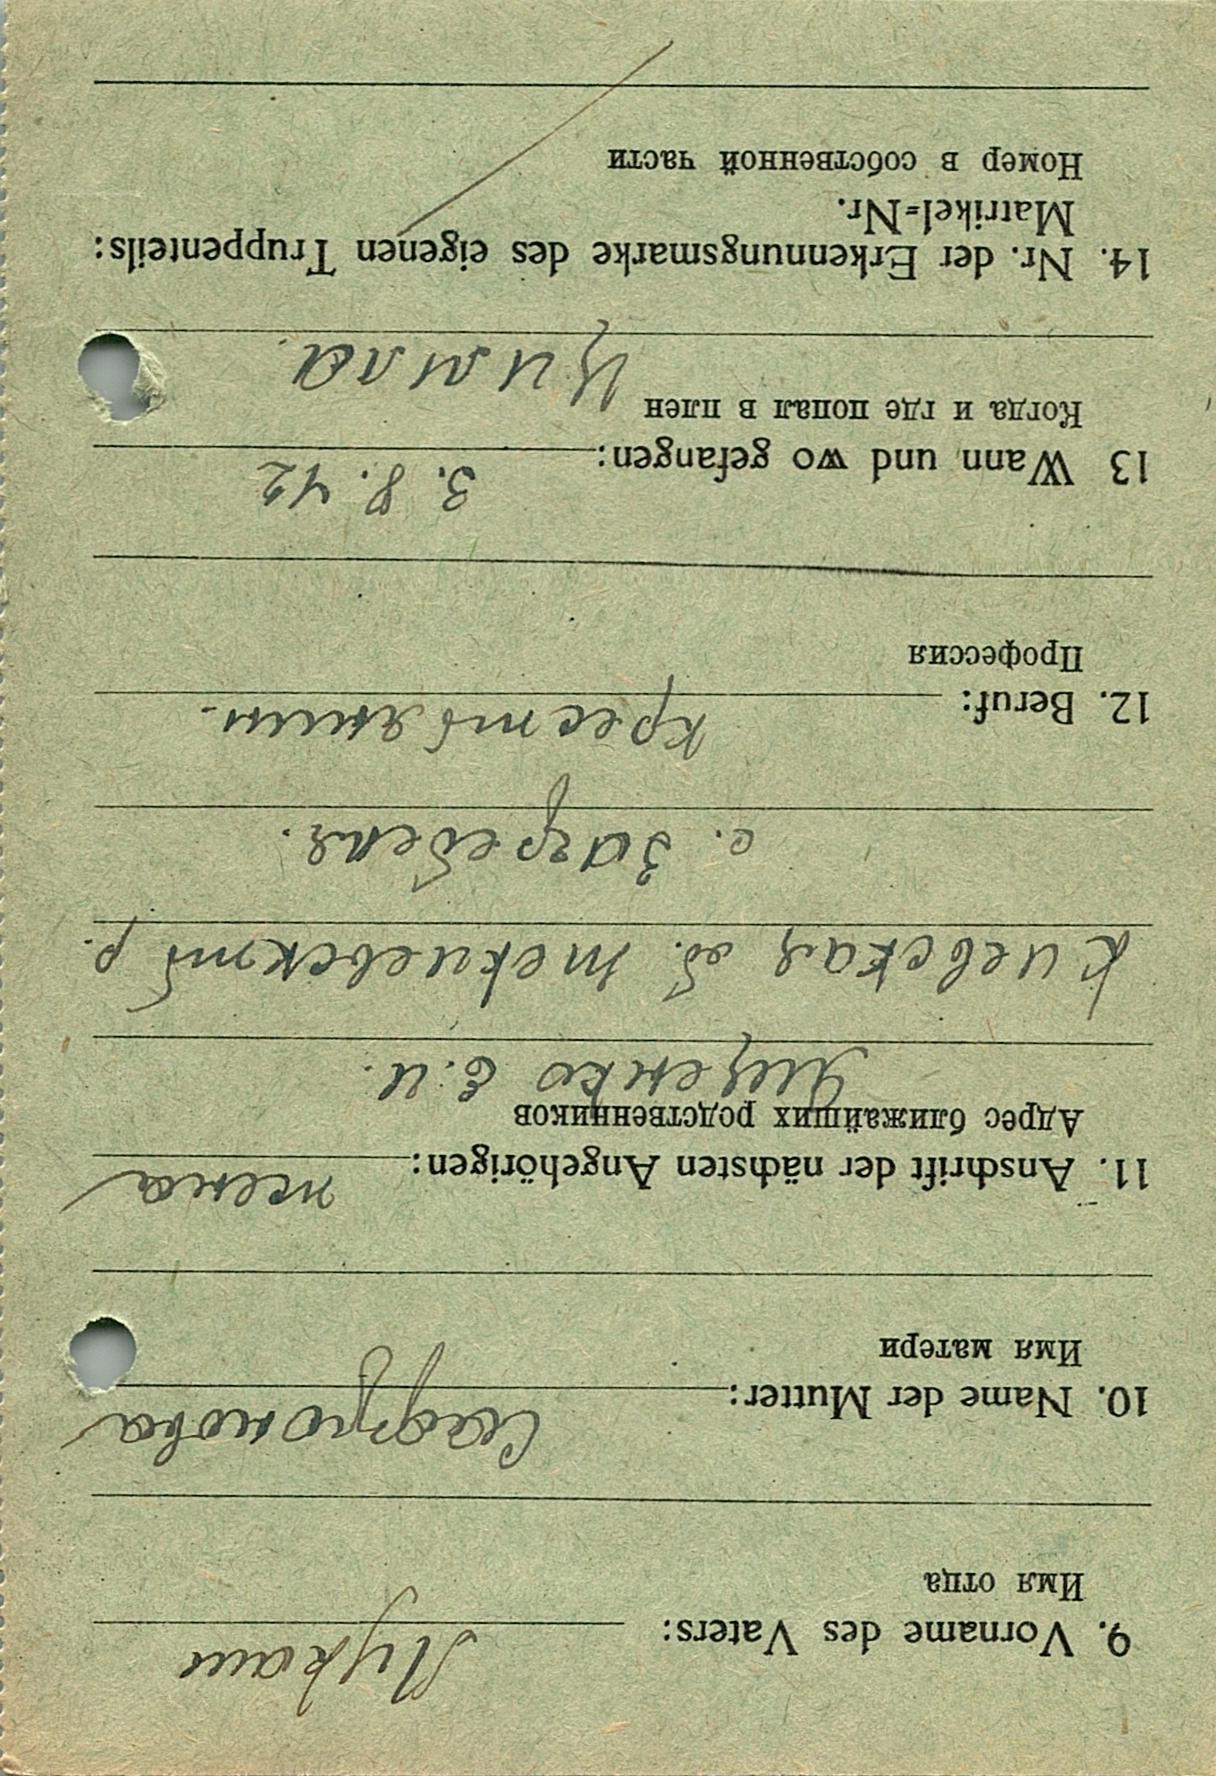 9. Vorname des Vaters: Лукаш
Имя отца
10. Name der Mutter: Сафронова
Имя матери
11. Anschrift der nächsten Angehörigen: жена
Адрес ближайших родственников
Ященко Е. И.
Киевская об. р.
с. Загребеля.
12. Beruf: крестьянин.
Профессия
13 Wann und wo gefangen: 3. 8. 42
Когда и где попал в плен
Цимла.
14. Nr. der Erkennungsmarke des eigenen Truppenteils:
Matrikel=Nr.
Номер в собственной части